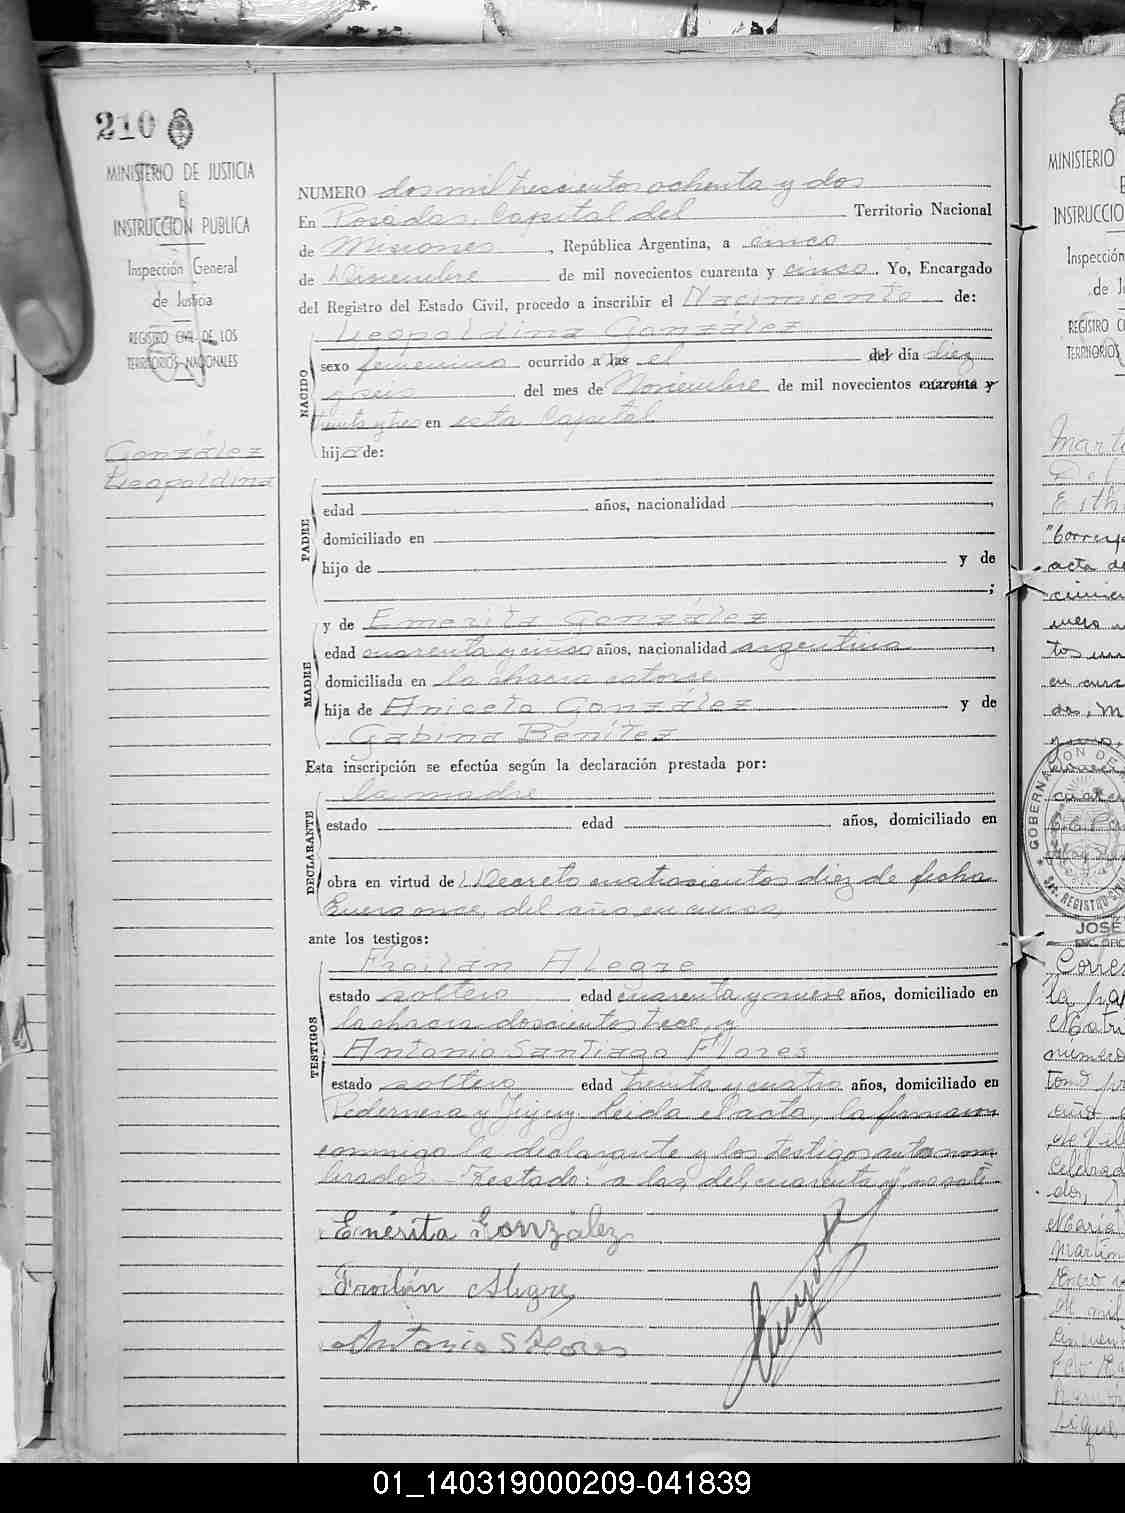 210
MINISTERIO DE JUSTICIA
E
INSTRUCCION PUBLICA
Inspección General
de Justicia
REGISTRO CIVIL DE LOS
TERRITORIOS NACIONALES
González
Leopoldina
NUMERO dos mil trescientos ochenta y dos
En Posadas, Capital del Territorio Nacional
de Misiones, República Argentina, a cinco
de Diciembre de mil novecientos cuarenta y cinco. Yo, Encargado
del Registro del Estado Civil, procedo a inscribir el Nacimiento de:
NACIDO
Leopoldina González
sexo femenino ocurrido a las el del día diez
y seis del mes de Noviembre de mil novecientos cuarenta y
treinta y tres en esta Capital
hija de:
PADRE
edad años, nacionalidad ,
domiciliado en
hijo de y de
;
MADRE
y de Emerita González
edad cuarenta y cinco años, nacionalidad argentina,
domiciliada en la chacra catorce
hija de Aniceto González y de
Gabina Benítez
Esta inscripción se efectúa según la declaración prestada por:
DECLARANTE
la madre
estado edad años, domiciliado en
obra en virtud de Decreto cuatrocientos diez de fecha
Enero once, del año en curso,
ante los testigos:
TESTIGOS
Froilán Alegre
estado soltero edad cuarenta y nueve años, domiciliado en
la chacra doscientos trece, y
Antonio Santiago Flores
estado soltero edad treinta y cuatro años, domiciliado en
Pedernera y Jujuy. Leida el acta, la firmaron
conmigo la declarante y los testigos antes nom
brados.- Testado: "a las, del, cuarenta y", no vale
Enérita González
Froilán Alegre
Antonio S Flores
MINISTERIO
E
INSTRUCCIO
Inspección
de Ju
REGISTRO CI
TERRITORIOS
acta de
GOBERNACION DE
REGISTRO CIVIL
JOSÉ
01_140319000209-041839